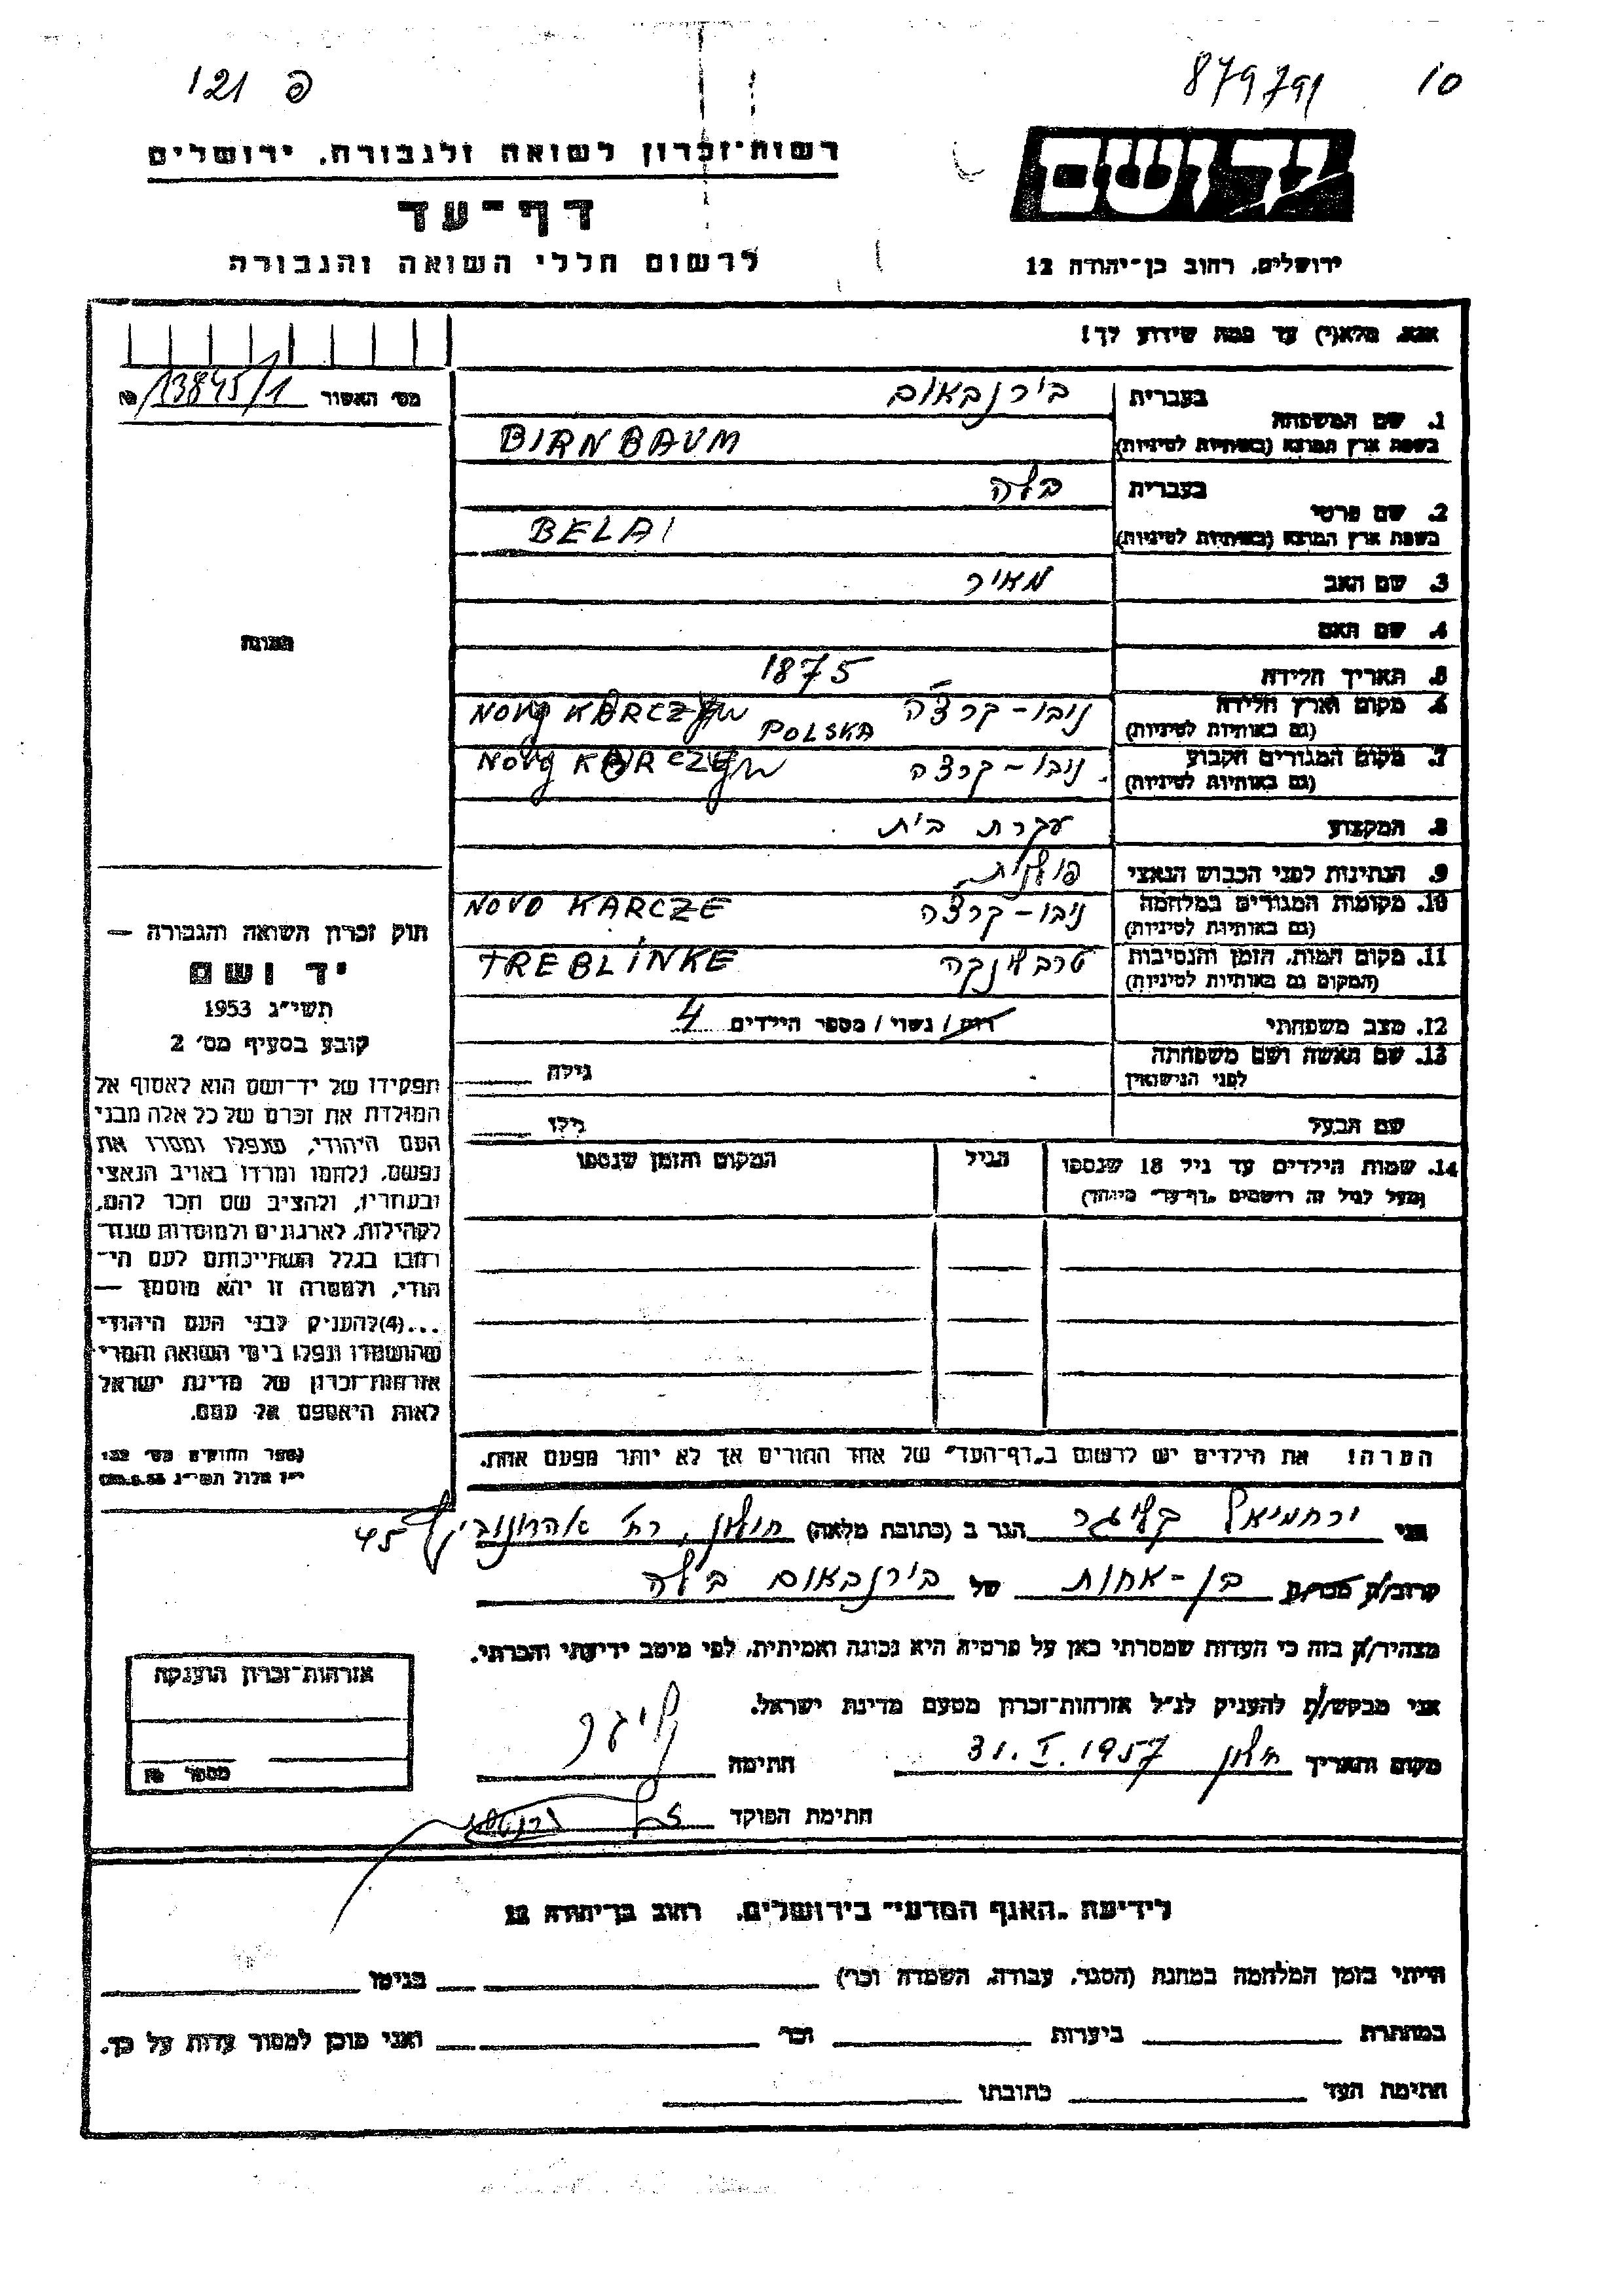 פ 121
879791 10
יד ושם
ירושלים, רחוב בן-יהודה 12
רשות-זכרון לשואה ולגבורה, ירושלים
דף-עד
לרשום חללי השואה והגבורה
אנא, מלא(י) עד כמה שידוע לך!
מס' האשור 13845/1 №
1. שם המשפחה בעברית בירנבאום
בשפת ארץ המוצא (באותיות לטיניות) BIRNBAUM
2. שם פרטי בעברית בלה
בשפת ארץ המוצא (באותיות לטיניות) BELA
3. שם האב מאיר
4. שם האם
תמונה
5. תאריך הלידה 1875
6. מקום וארץ הלידה ניבו-קרצ'ה NOVY KARCZYN POLSKA
(גם באותיות לטיניות)
7. מקום המגורים הקבוע ניבו-קרצה NOVY KARCZYN
(גם באותיות לטיניות)
8. המקצוע עקרת בית
9. הנתינות לפני הכבוש הנאצי פולנית
10. מקומות המגורים במלחמה ניבו-קרצה NOVO KARCZE
(גם באותיות לטיניות)
11. מקום המות, הזמן והנסיבות טרבלינקה TREBLINKE
(המקום גם באותיות לטיניות)
12. מצב משפחתי רווק / נשוי / מספר הילדים 4
13. שם האשה ושם משפחתה גילה
לפני הנישואין
שם הבעל גילו
14. שמות הילדים עד גיל 18 שנספו הגיל המקום והזמן שנספו
(מעל לגיל זה רושמים "דף-עד" מיוחד)
הערה! את הילדים יש לרשום ב"דף-העד" של אחד ההורים אך לא יותר מפעם אחת.
חוק זכרון השואה והגבורה —
יד ושם
תשי"ג 1953
קובע בסעיף מס' 2
תפקידו של יד-ושם הוא לאסוף אל
המולדת את זכרם של כל אלה מבני
העם היהודי, שנפלו ומסרו את
נפשם, נלחמו ומרדו באויב הנאצי
ובעוזריו, ולהציב שם וזכר להם,
לקהילות, לארגונים ולמוסדות שנח-
רבו בגלל השתייכותם לעם הי-
הודי, ולמטרה זו יהא מוסמך —
...(4) להעניק לבני העם היהודי
שהושמדו ונפלו בימי השואה והמרי
אזרחות-זכרון של מדינת ישראל
לאות היאספם אל עמם.
(ספר החוקים מס' 132
י"ז אלול תשי"ג 28.8.53)
אני ירחמיאל קליגר הגר ב (כתובת מלאה) חולון, רח' אהרונוביץ 45
קרוב/ה מכר/ה בן-אחות של בירנבאום בילה
מצהיר/ה בזה כי העדות שמסרתי כאן על פרטיה היא נכונה ואמיתית, לפי מיטב ידיעתי והכרתי.
אני מבקש/ת להעניק לנ"ל אזרחות-זכרון מטעם מדינת ישראל.
מקום ותאריך חולון 31.I.1957 חתימה קליגר
חתימת הפוקד
אזרחות-זכרון הוענקה
מספר №
לידיעת "האגף המדעי" בירושלים, רחוב בן-יהודה 12
הייתי בזמן המלחמה במחנה (הסגר, עבודה, השמדה וכו') בגיטו
במחתרת ביערות וכו' ואני מוכן למסור עדות על כך.
חתימת העד כתובתו